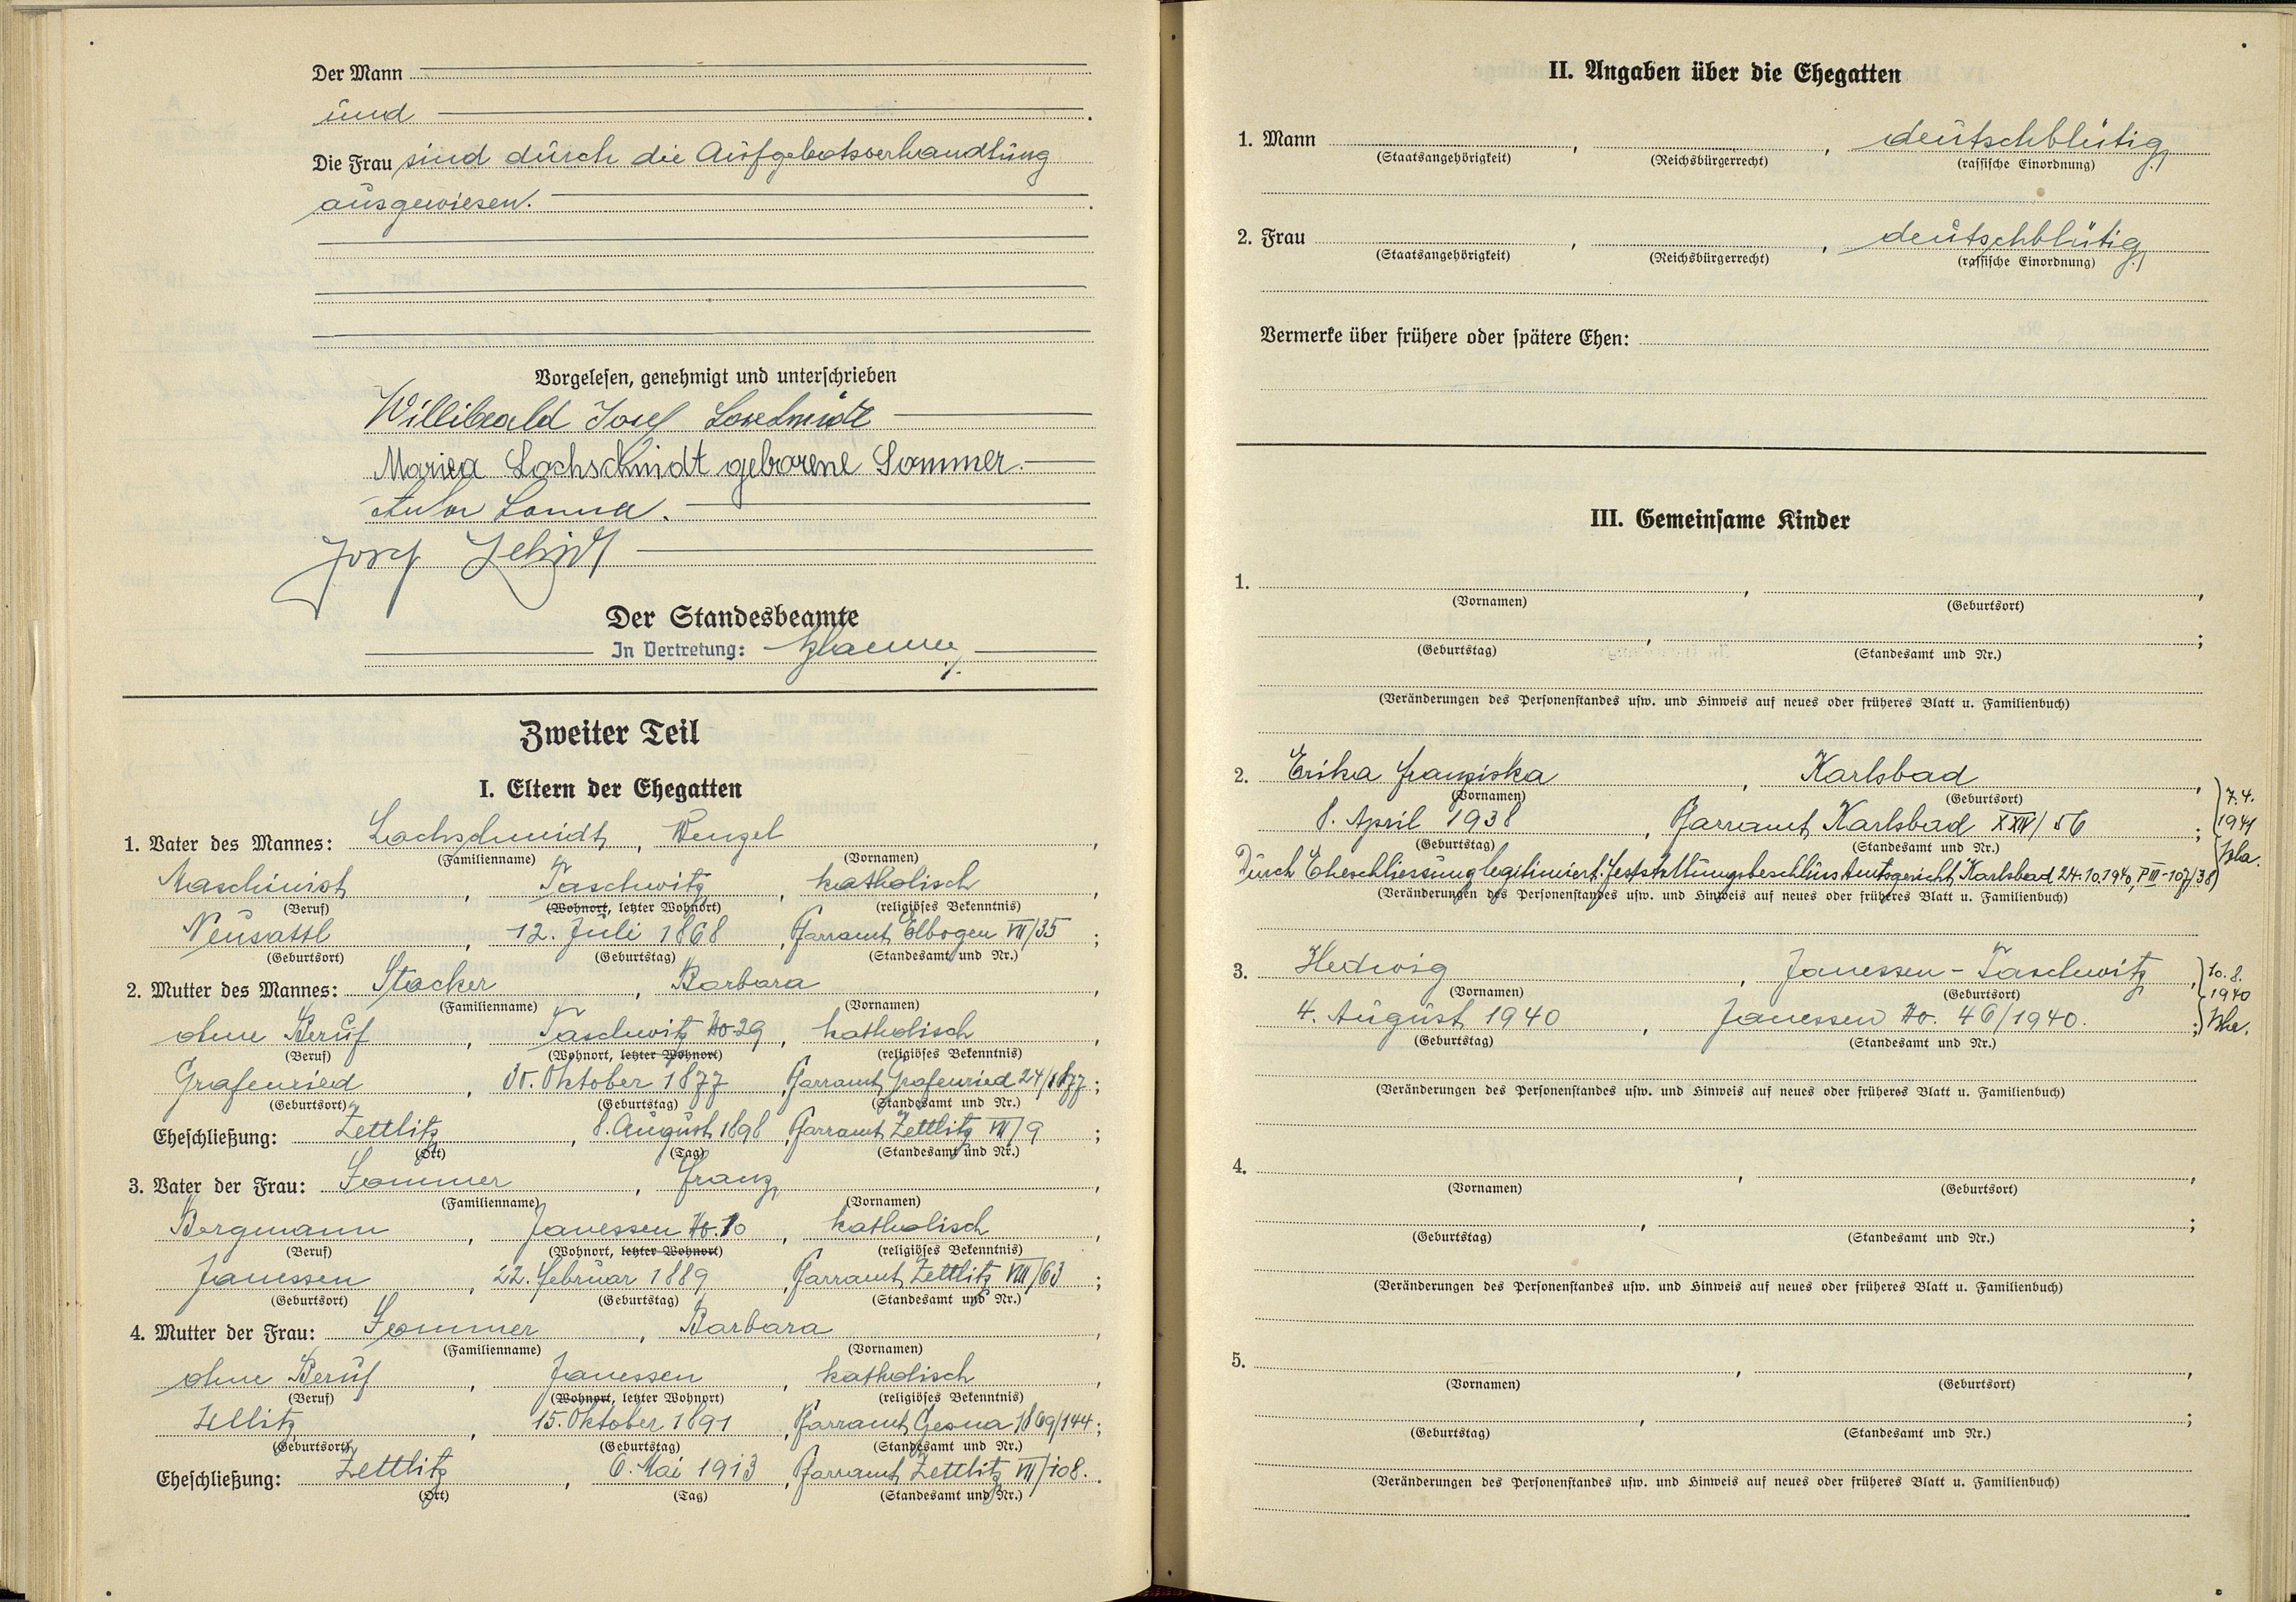 Der Mann
und
Die Frau sind durch die Aufgebotsverhandlung
ausgewiesen.
Vorgelesen, genehmigt und unterschrieben
Willibald Josef Lochschmidt
Mariea Lochschmidt geborene Sommer.
Josef
Der Standesbeamte
In Vertretung:
Zweiter Teil
I. Eltern der Ehegatten
1. Vater des Mannes: Lochschmidt, Wenzel,
(Familienname) (Vornamen)
Maschinist, Taschwitz, katholisch,
(Beruf) (Wohnort, letzter Wohnort) (religiöses Bekenntnis)
Neusattl, 12. Juli 1868, Pfarramt Elbogen VII/35;
(Geburtsort) (Geburtstag) (Standesamt und Nr.)
2. Mutter des Mannes: Stocker, Barbara,
(Familienname) (Vornamen)
ohne Beruf, Taschwitz No 29, katholisch,
(Beruf) (Wohnort, letzter Wohnort) (religiöses Bekenntnis)
Grafenried, Oktober 1877, Pfarramt Grafenried 24/1877;
(Geburtsort) (Geburtstag) (Standesamt und Nr.)
Eheschließung: Zettlitz, 8. August 1898, Pfarramt Zettlitz VII/9;
(Ort) (Tag) (Standesamt und Nr.)
3. Vater der Frau: Sommer, Franz,
(Familienname) (Vornamen)
Bergmann, Janessen No. 10, katholisch,
(Beruf) (Wohnort, letzter Wohnort) (religiöses Bekenntnis)
Janessen, 22. Februar 1889, Pfarramt Zettlitz VIII/63;
(Geburtsort) (Geburtstag) (Standesamt und Nr.)
4. Mutter der Frau: Sommer, Barbara,
(Familienname) (Vornamen)
ohne Beruf, Janessen, katholisch,
(Beruf) (Wohnort, letzter Wohnort) (religiöses Bekenntnis)
15. Oktober 1891, Pfarramt Gesna 1869/144;
(Geburtsort) (Geburtstag) (Standesamt und Nr.)
Eheschließung: Zettlitz, 6. Mai 1913, Pfarramt Zettlitz VII/108.
(Ort) (Tag) (Standesamt und Nr.)
II. Angaben über die Ehegatten
1. Mann , , deutschblütig
(Staatsangehörigkeit) (Reichsbürgerrecht) (rassische Einordnung)
2. Frau , , deutschblütig
(Staatsangehörigkeit) (Reichsbürgerrecht) (rassische Einordnung)
Vermerke über frühere oder spätere Ehen:
III. Gemeinsame Kinder
1. , ,
(Vornamen) (Geburtsort)
, ;
(Geburtstag) (Standesamt und Nr.)
(Veränderungen des Personenstandes usw. und Hinweis auf neues oder früheres Blatt u. Familienbuch)
2. Erika Franziska, Karlsbad,
(Vornamen) (Geburtsort) 7. 4.
8. April 1938, Pfarramt Karlsbad XXIV/56; 1941
(Geburtstag) (Standesamt und Nr.)
Durch Eheschliessung legitimiert. Feststellungsbeschluss Amtsgericht Karlsbad 24.10.1940, P III-107/38
(Veränderungen des Personenstandes usw. und Hinweis auf neues oder früheres Blatt u. Familienbuch)
3. Hedwig, Janessen-Taschwitz, 10. 8.
(Vornamen) (Geburtsort) 1940
4. August 1940, Janessen No. 46/1940.;
(Geburtstag) (Standesamt und Nr.)
(Veränderungen des Personenstandes usw. und Hinweis auf neues oder früheres Blatt u. Familienbuch)
4. , ,
(Vornamen) (Geburtsort)
, ;
(Geburtstag) (Standesamt und Nr.)
(Veränderungen des Personenstandes usw. und Hinweis auf neues oder früheres Blatt u. Familienbuch)
5. , ,
(Vornamen) (Geburtsort)
, ;
(Geburtstag) (Standesamt und Nr.)
(Veränderungen des Personenstandes usw. und Hinweis auf neues oder früheres Blatt u. Familienbuch)